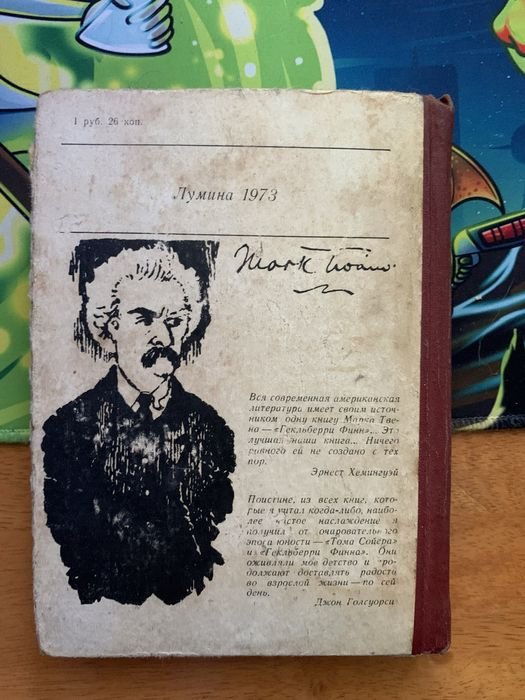 1 руб. 26 коп.
Лумина 1973
Mark Twain.
Вся современная американская
литература имеет своим источ-
ником одну книгу Марка Тве-
на — «Гекльберри Финн»... Это
лучшая наша книга... Ничего
равного ей не создано с тех
пор.
Эрнест Хемингуэй
Поистине, из всех книг, кото-
рые я читал когда-либо, наибо-
лее чистое наслаждение я
получил от очаровательного
эпоса юности — «Тома Сойера»
и «Гекльберри Финна». Они
оживляли мое детство и про-
должают доставлять радость
во взрослой жизни — по сей
день.
Джон Голсуорси